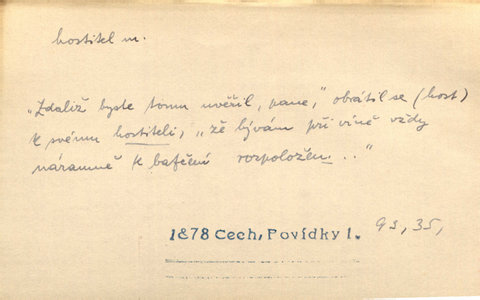 hostitel m.
„Zdaliž byste tomu uvěřil, pane," obrátil se (host)
k svému hostiteli, „že bývám při víně vždy
náramně k bafčení rozpoložen..."
1878 Čech, Povídky 1. 93, 35,